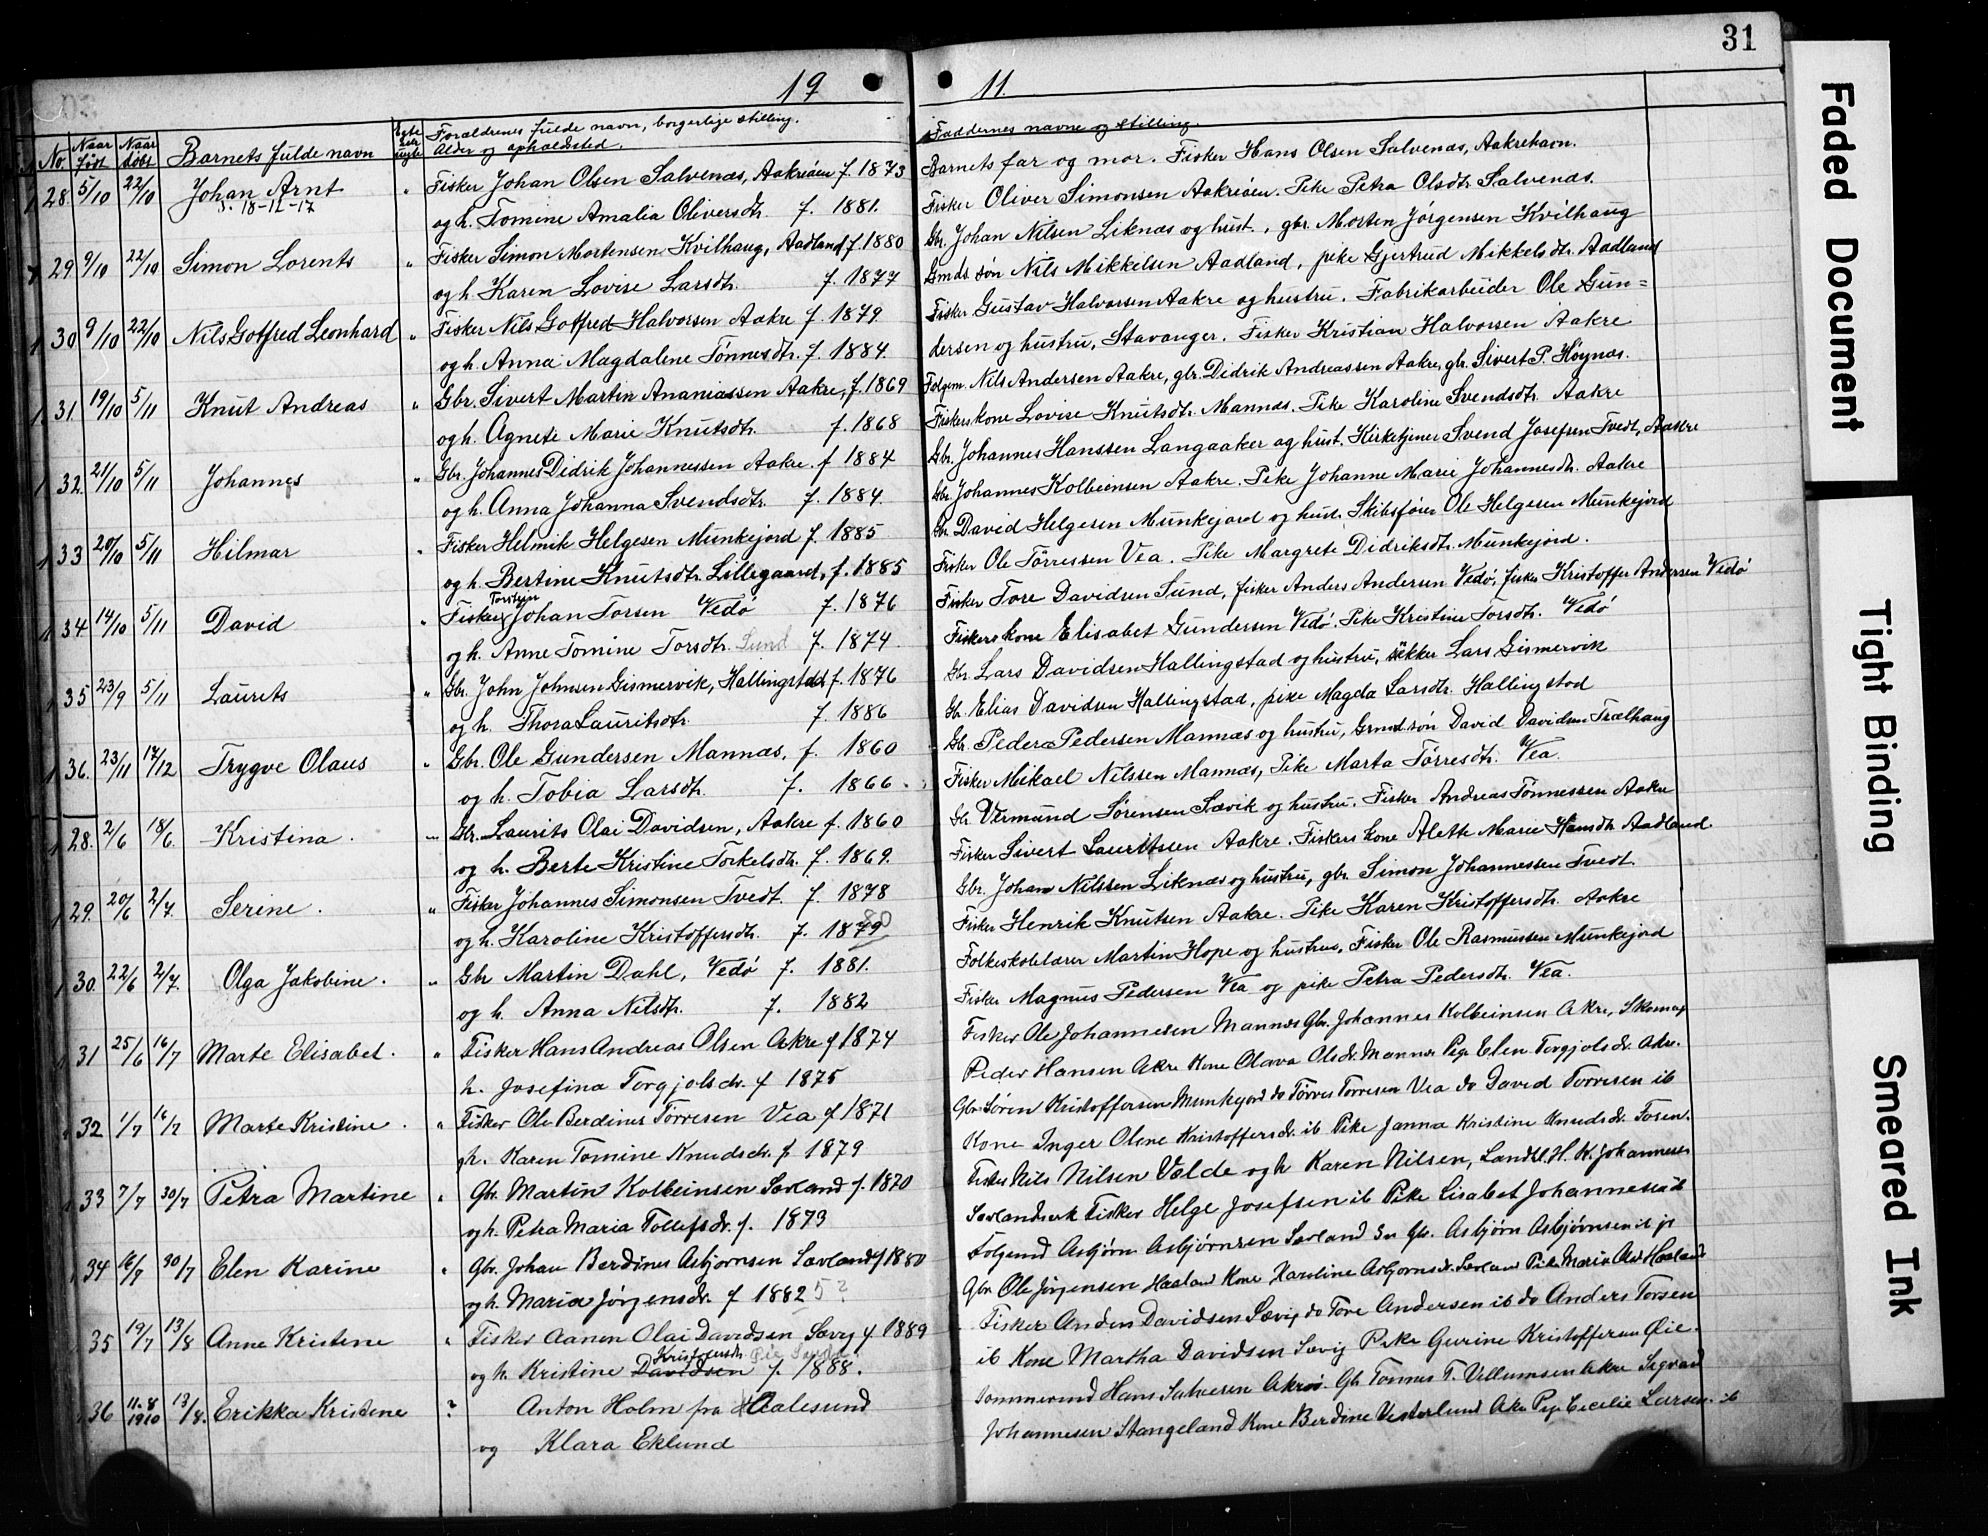 31
19 11.
No Naar født Naar døbt Barnets fulde navn Egte eller uegte Forældrenes fulde navn, borgerlige stilling. Alder og opholdssted. Faddernes navne og stilling.
28 5/10 22/10 Johan Arnt " Fisker Johan Olsen Salvenæs, Aakreøen f. 1873 Barnets far og mor. Fisker Hans Olsen Salvenæs, Aakrehavn.
D. 18-12-17 og h. Tomine Amalia Oliversdtr. f. 1881. Fisker Oliver Simonsen Aakreøen. Pike Petra Olsdtr Salvenæs.
29 9/10 22/10 Simon Lorents " Fisker Simon Mortensen Kvilhaug, Aadland f. 1880 Gbr. Johan Nilsen Liknæs og hust., gbr. Morten Jørgensen Kvilhaug
og h. Karen Lovise Larsdtr. f. 1877 Gmds. søn Nils Mikkelsen Aadland, pike Gjertrud Mikkelsdtr. Aadland
30 9/10 22/10 Nils Gotfred Leonhard " Fisker Nils Gotfred Halvorsen Aakre f. 1879 Fisker Gustav Halvorsen Aakre og hustru. Fabrikarbeider Ole Gun=
og h. Anna Magdalene Tønnesdtr. f. 1884. dersen og hustru, Stavanger. Fisker Kristian Halvorsen Aakre
31. 19/10 5/11 Knut Andreas " Gbr. Sivert Martin Ananiassen Aakre, f. 1869 Følgem. Nils Andersen Aakre, gbr. Didrik Andreassen Aakre, gbr. Sivert P. Høynæs.
og h. Agnete Marie Knutsdtr. f. 1868 Fiskers kone Lovise Knutsdtr. Mannæs. Pike Karoline Svendsdtr. Aakre
32. 21/10 5/11 Johannes " Gbr. Johannes Didrik Johannessen Aakre. f 1884 Gbr. Johannes Hanssen Langaaker og hust. Kirketjener Svend Josefsen Tvedt, Aakre
og h. Anna Johanna Svendsdtr. f. 1884. Gbr. Johannes Kolbeensen Aakre. Pike Johanne Marie Johannesdtr. Aakre
33 20/10 5/11 Hilmar " Fisker Helmik Helgesen Munkejord f. 1885 Gbr. David Helgesen Munkejord og hust. Skibsfører Ole Helgesen Munkejord
og h. Bertine Knutsdtr. Lillegaard, f. 1885 Fisker Ole Tørressen Vea. Pike Margrete Didriksdtr. Munkejord.
34 14/10 5/11 David " Fisker Torstein Johan Torsen Vedø f. 1876 Fisker Tore Davidsen Sund, fisker Anders Andersen Vedø, fisker Kristoffer Andersen Vedø
og h. Anne Tomine Torsdtr. Sund f. 1874 Fiskers kone Elisabet Gundersen Vedø. Pike Kristine Torsdtr. Vedø
35 23/9 5/11 Laurits " Gbr. John Johnsen Gismervik, Hallingstad f. 1876 Gbr. Lars Davidsen Hallingstad og hustru, Lars Gismervik
og h. Thora Lauritsdtr. f. 1886 Gbr. Elias Davidsen Hallingstad, pike Magda Larsdtr. Hallingstad
36. 23/11 17/12 Trygve Olaus " Gbr. Ole Gundersen Mannæs, f. 1860 Gbr. Peder Pedersen Mannæs og hustru, Grmd. søn David Davidsen Trælhaug
og h. Tobia Larsdtr. f. 1866. Fisker Mikael Nilssen Mannæs, Pike Marta Tørresdtr. Vea.
28. 2/6 18/6. Kristina. " Gbr. Laurits Olai Davidsen, Aakre f. 1860 Gbr. Vermund Sørensen Sævik og hustru. Fisker Andreas Tønnessen Aakre
og h. Berte Kristine Torkelsdtr. f. 1869. Fisker Sivert Lauritssen Aakre. Fiskers kone Alette Marie Hansdtr. Aadland.
29. 20/6 2/7. Serine. " Fisker Johannes Simonsen Tvedt. f. 1878 Gbr. Johan Nilssen Liknæs og hustru, gbr. Simon Johannessen Tvedt.
og h. Karoline Kristoffersdtr. f. 1879 80 Fisker Henrik Knutsen Aakre. Pike Karen Kristoffersdtr. Aakre
30. 22/6 2/7. Olga Jakobine. " Gbr Martin Dahl, Vedø f. 1881. Folkeskolelærer Martin Hope og hustru, Fisker Ole Rasmussen Munkejord
og h. Anna Nilsdtr. f. 1882 Fisker Magnus Pedersen Vea og pike Petra Pedersdtr. Vea.
31 25/6 16/7 Marte Elisabet. " Fisker Hans Andreas Olsen Akre f 1874 Fisker Ole Johannesen Mannes Gbr. Johannes Kolbeinsen Akre, Skomag
h. Josefina Torgjolsdr. f 1875 Peder Hansen Akre Kone Olava Olsdr. Mannes Pige Elen Torgjolsdr. Akre.
32 1/7 16/7 Marte Kristine. " Fisker Ole Berdines Tørresen Vea f 1871 Gbr Søren Kristoffersen Munkejord do Tørres Torresen Vea do David Torresen ib
gh. Karen Tomine Knudsdr. f 1879 Kone Inger Olene Kristoffersdr. ib Pike Janna Kristine Knudsdr. Tosen.
33 7/7 30/7 Petra Martine " Gbr. Martin Kolbeinsen Sævland f. 1870 Fisker Nils Nilsen Valde og h Karen Nilsen, Landh. H. K. Johannesen
og h. Petra Maria Tollefsdr. f. 1873 Sævlandsvik Fisker Helge Josefsen ib Pike Lisabet Johannesen ib
34 16/7 30/7 Elen Karine " Gbr. Johan Berdines Asbjørnsen Sævland f 1880 Følgemd Asbjørn Asbjørnsen Sævland Gbr. Asbjørn Asbjørnsen ib
og h. Maria Jørgensdr. f 1882 5? Gbr Ole Jørgensen Haaland Kone Karoline Asbjørnsdr. Sævland Pike Maria Haaland
35 19/7 13/8 Anne Kristine " Fisker Aanen Olai Davidsen Sævig f 1889 Fisker Anden Davidsen Sævig do Tore Andersen ib do Anders Torsen
og h. Kristine Davidsen Kristofersdtr. f. 1888. ib Kone Martha Davidsen Sævig Pike Gurine Kristoffersen Øie.
36 11.8 1910 13/8. Erikka Kristine ? Anton Holm fra Aalesund Tømmermd Hans Salvesen Akrø. Gb Tonnes T. Villumsen Akre Sigvard
og Klara Eklund Johannesen Stangeland Kone Berdine Vesterlund Akre Pige Cecelie Larsen ib
Faded Document
Tight Binding
Smeared Ink